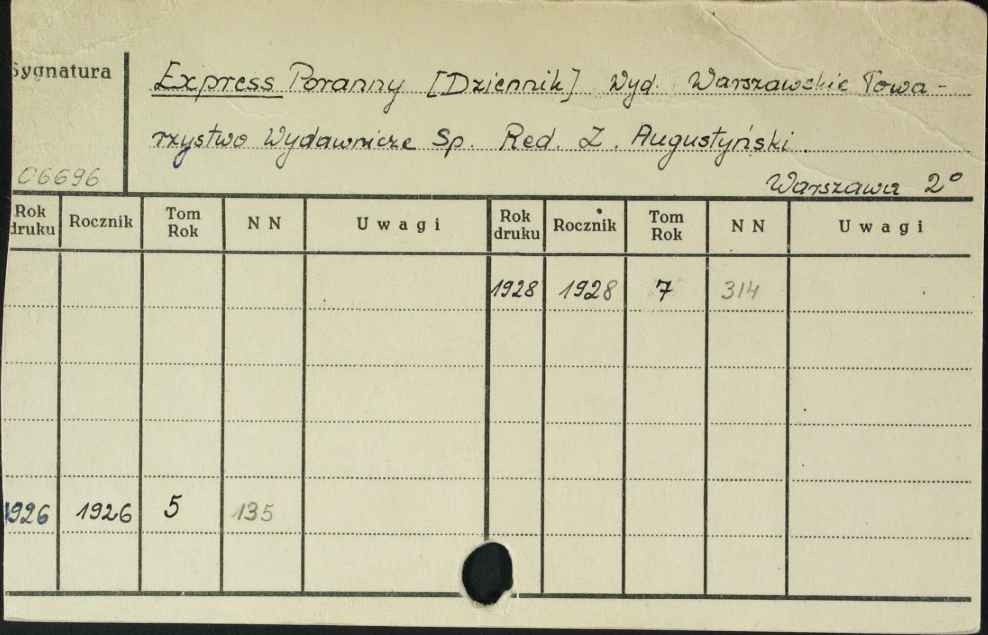 Sygnatura
Express Poranny [Dziennik] Wyd. Warszawskie Towa-
rzystwo Wydawnicze Sp. Red. Z. Augustyński.
06696
Warszawa 2°
Rok druku Rocznik Tom Rok NN Uwagi Rok druku Rocznik Tom Rok NN Uwagi
1928 1928 7 314
1926 1926 5 135